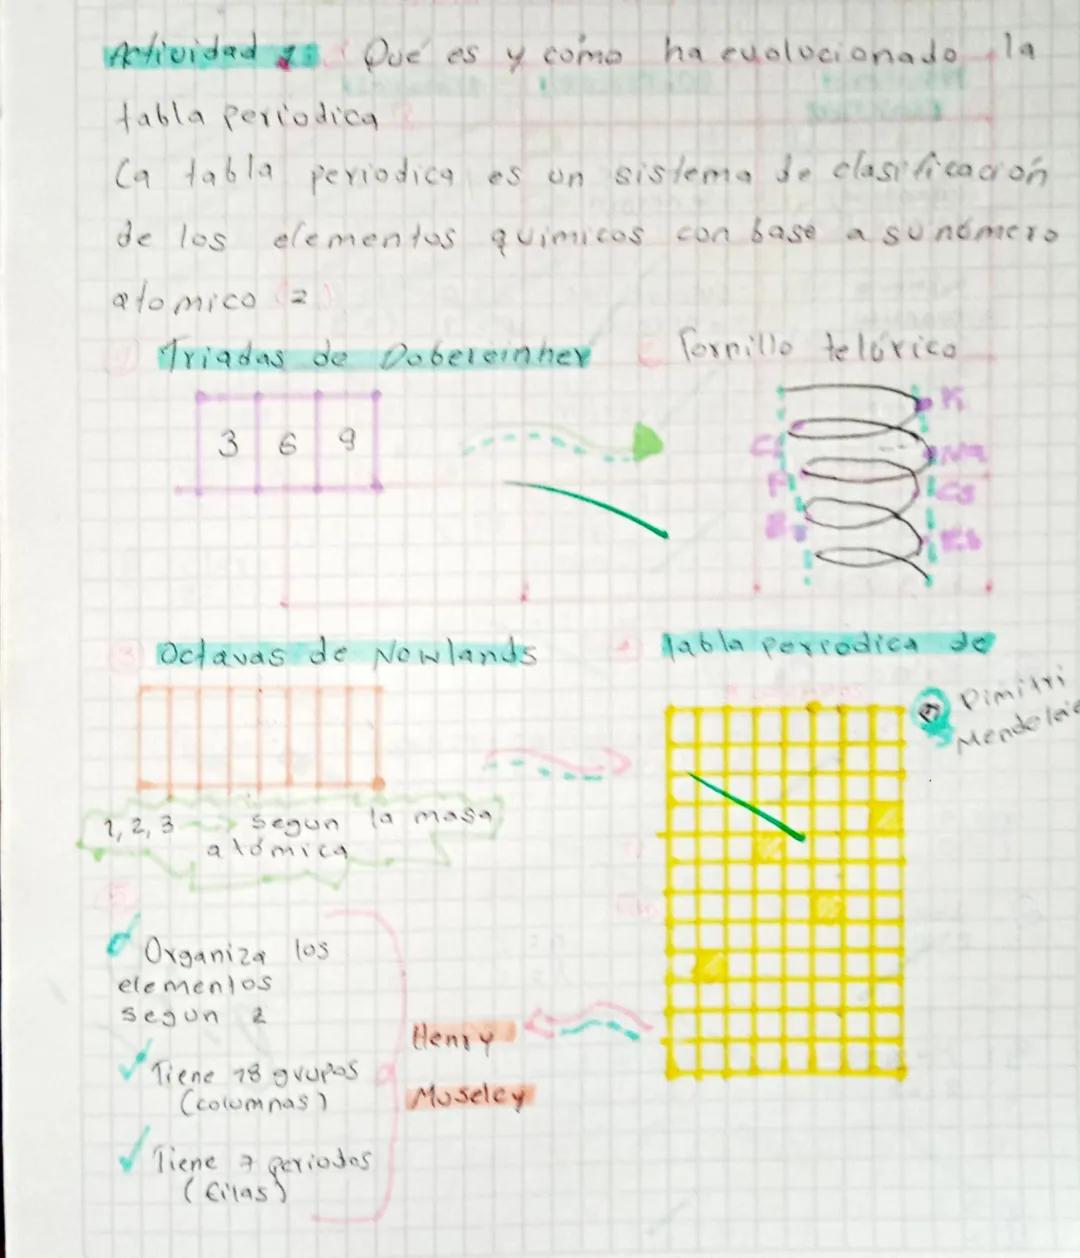 Actividad 1: Qué es y cómo ha evolucionado la
tabla periodica
La tabla periodica es un sistema de clasificación
de los elementos quimicos con base a su número
atomico (z)
Triadas de Dobereinher
3 6 9
Tornillo telúrico
K
Na
Cs
Octavas de Newlands
1, 2, 3 segun la masa
atómica
4 Tabla periodica de
Dimitri
Mendeleie
5
Organiza los
elementos
segun z
Tiene 18 grupos
(columnas)
Tiene 7 periodos
(filas)
Henry
Moseley